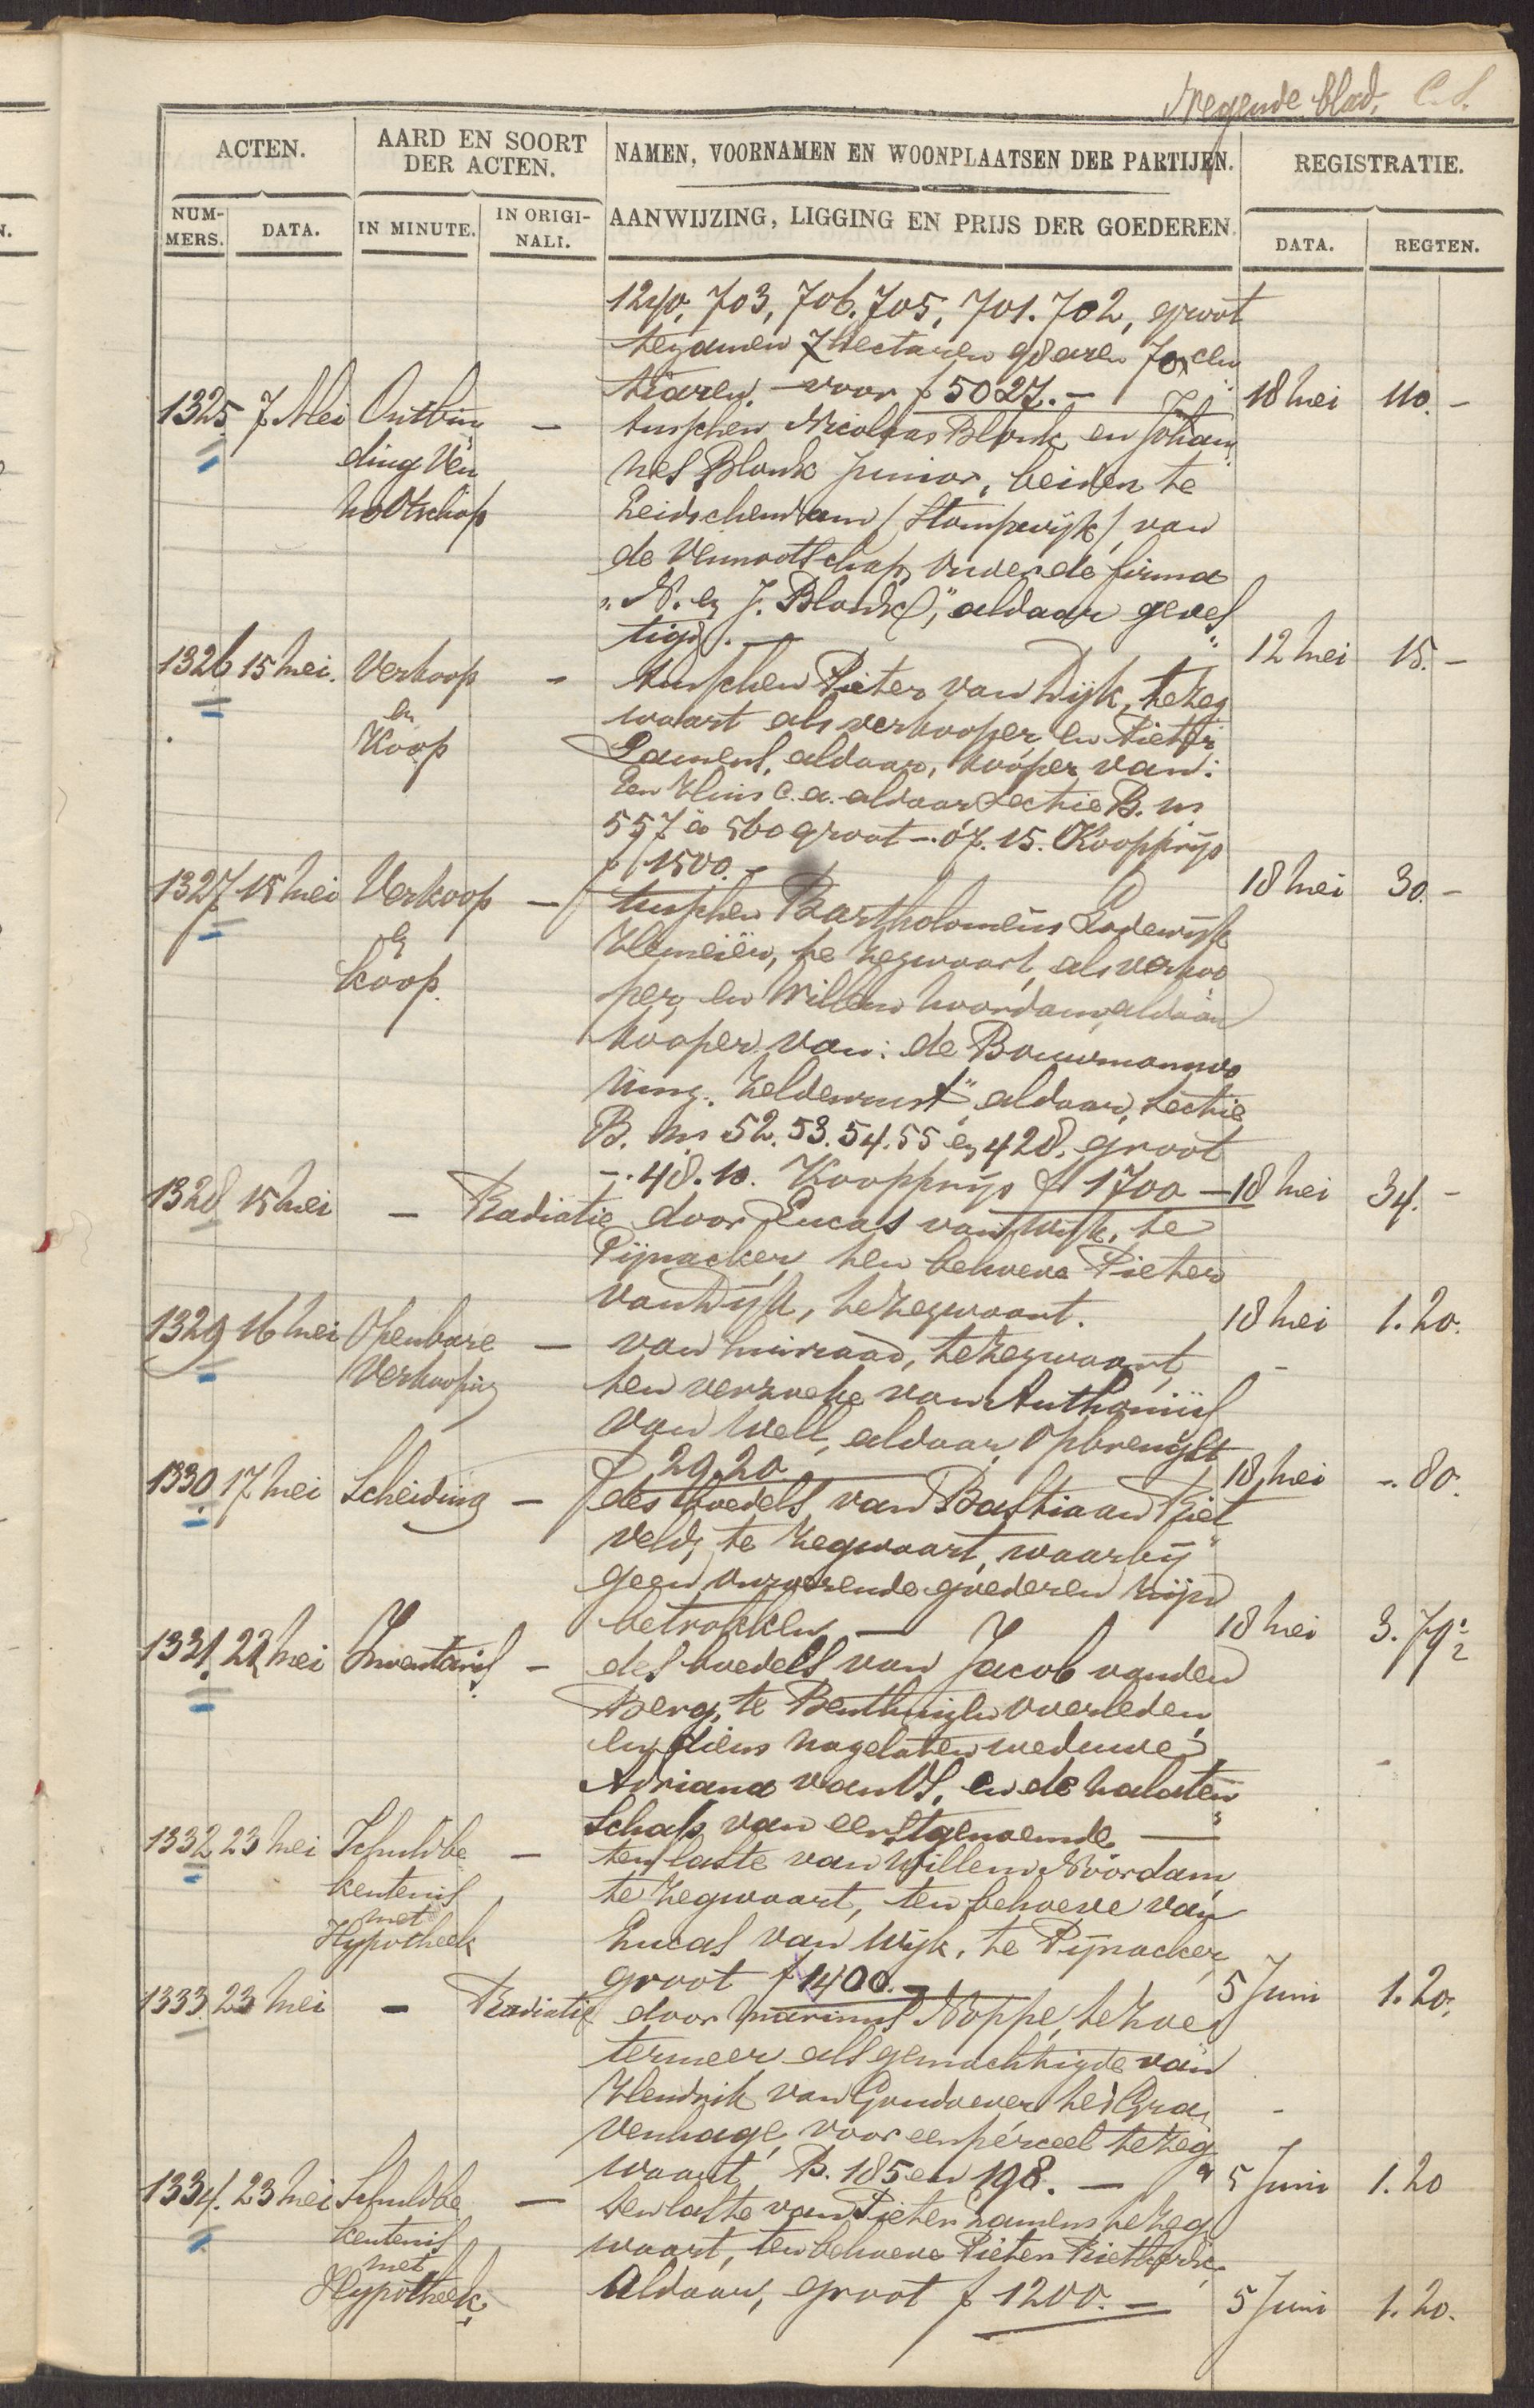 Negende blad. C.S.
ACTEN. AARD EN SOORT DER ACTEN. NAMEN, VOORNAMEN EN WOONPLAATSEN DER PARTIJEN. REGISTRATIE.
NUM-MERS. DATA. IN MINUTE. IN ORIGI-NALI. AANWIJZING, LIGGING EN PRIJS DER GOEDEREN. DATA. REGTEN.
1240, 703, 706. 705, 701. 702, groot
tezamen 7 Hectaren 98 aren 70 cen
tiaren. - voor f 5027.- 18 Mei 110.-
1325 7 Mei Ontbin - tusschen Nicolaas Blonk en Johan
ding Ven nes Blonk Junior, beiden te
nootschap Leidschendam (Stompwijk) van
de Vennootschap onder de firma
"N. en J. Blonk", aldaar geves
tigd. - 12 Mei 15.-
1326 15 Mei. Verkoop - tusschen Pieter van Dijk, te Zeg
en waart als verkooper en Pieter
Koop Damens, aldaar, kooper van:
Een Huis c.a. aldaar Sectie B. ns
557 en 560 groot -. 07. 15. Koopprijs
f 1500.- 18 Mei 30.-
1327 15 Mei Verkoop - tusschen Bartholomeus Lodewijk
en Hemeiën, te Zegwaart, als verkoo
Koop. per, en Willem Noordam, aldaar
kooper van: de Bouwmanswo
ning. Zeldenrust", aldaar, Sectie
B. ns 52. 53. 54. 55 en 428. groot
-. 48. 10. Koopprijs f 1700 - 18 Mei 34.-
1328 15 Mei - Radiatie door Lucas van Wijk, te
Pijnacker, ten behoeve Pieter
van Dijk, te Zegwaart. 18 Mei 1.20.
1329 16 Mei Openbare - van huisraad, te Zegwaart,
Verkooping ten verzoeke van Anthonius
van Well, aldaar, opbrengst
f 29.20 18 Mei -. 80.
1330 17 Mei Scheiding - des boedels van Bastiaan Riet
veld, te Zegwaart, waarbij
geen onroerende goederen zijn
betrokken - 18 Mei 3. 79½
1331. 22 Mei Inventaris - des boedels van Jacob van den
Berg, te Benthuizen overleden,
en diens nagelaten weduwe
Adriana van Os, en de nalaten
schap van eerstgenoemde. -
1332 23 Mei Schuldbe - ten laste van Willem Noordam,
kentenis te Zegwaart, ten behoeve van
met
Hypotheek Lucas van Wijk, te Pijnacker,
groot f 1400.- 5 Juni 1.20.
1333. 23 Mei - Radiatie door Marinus Noppe, te Zoe
termeer als gemachtigde van
Hendrik van Goudoever te 's Gra
venhage, voor een perceel te Zeg
waart B. 185 en 198. - 5 Juni 1.20
1334. 23 Mei Schuldbe - ten laste van Pieter Damens, te Zeg
kentenis waart, ten behoeve Pieter
met
Hypotheek. aldaar, groot f 1200.- 5 Juni 1.20.